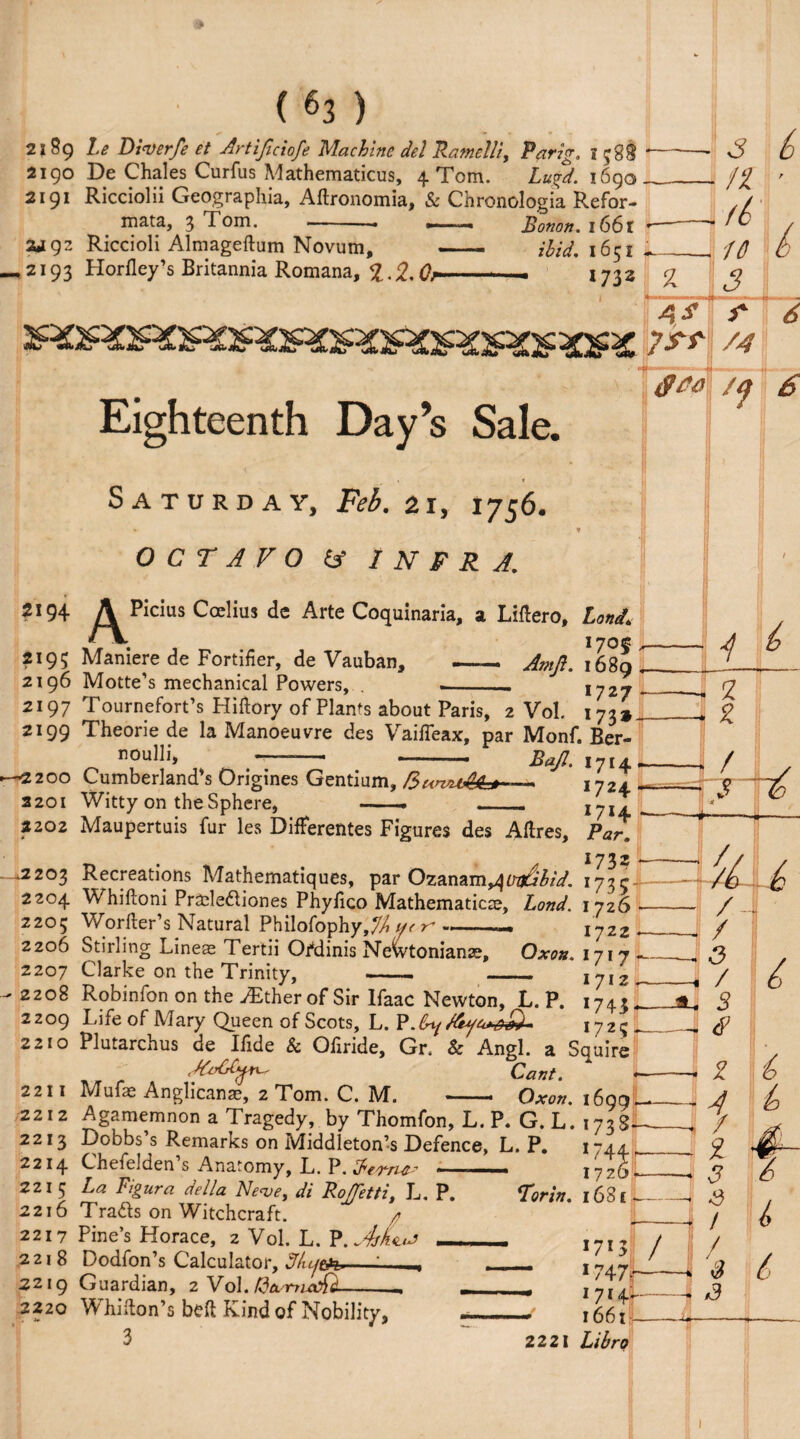 ( 63 )
2189 Le Diverſe et Artificioſe Machine del Ramelli, Parig. 1588 3 6
2190 De Chales Curſus Mathematicus, 4 Tom. Lugd. 1690 12
2191 Ricciolii Geographia, Aſtronomia, & Chronologia Refor-
mata, 3 Tom. Bonon. 1661 16
2192 Riccioli Almageſtum Novum, ibid. 1651 10 6
2193 Horſley's Britannia Romana, 2.2.0 1732 2 3
45 5 6
755 14
800 19 6
Eighteenth Day's Sale.
SATURDAY, Feb. 21, 1756.
OCTAVO & INFRA.
2194 APicius Cœlius de Arte Coquinaria, a Liſtero, Lond.
1705 4 6
2195 Maniere de Fortifier, de Vauban, Amſt. 1689
2196 Motte's mechanical Powers, 1727 2
2197 Tournefort's Hiſtory of Plants about Paris, 2 Vol. 1732 2
2199 Theorie de la Manoeuvre des Vaiſſeax, par Monſ. Ber-
noulli, Baſl. 1714 1
2200 Cumberland's Origines Gentium, 1724 3 6
2201 Witty on the Sphere, 1714
2202 Maupertuis ſur les Differentes Figures des Aſtres, Par.
1732
2203 Recreations Mathematiques, par Ozanam, ibid. 1735 16 6
2204 Whiſtoni Prælectiones Phyſico Mathematicæ, Lond. 1726 1
2205 Worſter's Natural Philoſophy, 1722 1
2206 Stirling Lineæ Tertii Ordinis Newtonianæ, Oxon. 1717 3
2207 Clarke on the Trinity, 1712 1 6
2208 Robinſon on the Æther of Sir Iſaac Newton, L. P. 1743 3
2209 Life of Mary Queen of Scots, L. P. 1725 8
2210 Plutarchus de Iſide & Oſiride, Gr. & Angl. a Squire
Cant. 2 6
2211 Muſæ Anglicanæ, 2 Tom. C. M. Oxon. 1699 4 6
2212 Agamemnon a Tragedy, by Thomſon, L. P. G. L. 1738 1
2213 Dobbs's Remarks on Middleton's Defence, L. P. 1744 2
2214 Cheſelden's Anatomy, L. P. 1726 3 6
2215 La Figura della Neve, di Roſſetti, L. P. Torin. 1681 3
2216 Tracts on Witchcraft. 1 6
2217 Pine's Horace, 2 Vol. L. P. 1713 1 1
2218 Dodſon's Calculator, 1747 3 6
2219 Guardian, 2 Vol. 1714 3
2220 Whiſton's beſt Kind of Nobility, 1661
3 2221 Libro